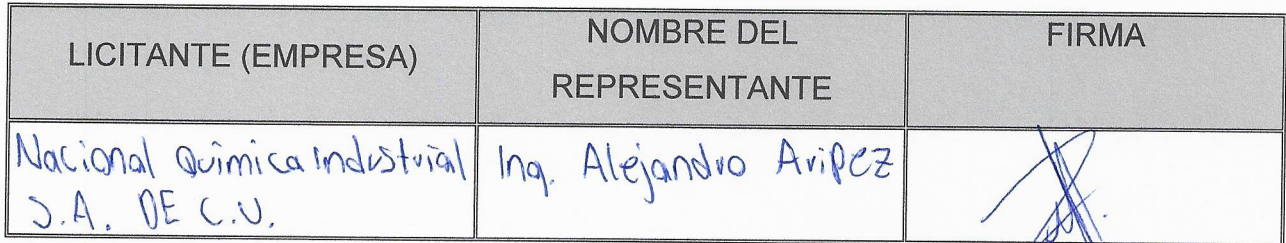 LICITANTE (EMPRESA)
NOMBRE DEL
REPRESENTANTE
FIRMA
Nacional Química Industrial
S.A. DE C.V.
Ing. Alejandro Aripez